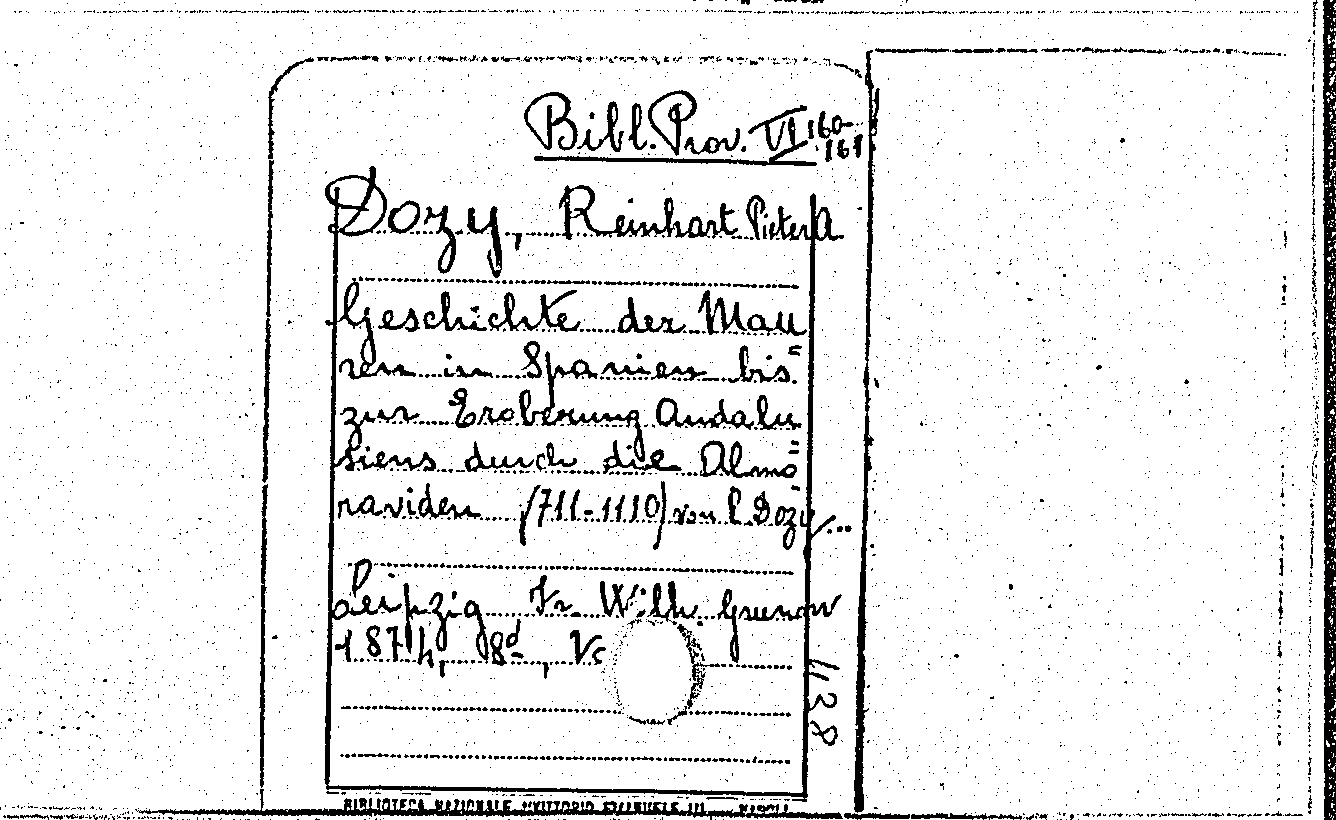 Bibl. Prov. VI 160-
161
Dozy, Reinhart Pieter A
Geschichte der Mau
=
ren in Spanien bis
zur Eroberung Andalu
=
siens durch die Almo
-
raviden (711-1110) von R. Dozy/...
Leipzig Fr. Wilh. Grunow
1874, 8º, Vc
438
BIBLIOTECA NAZIONALE "VITTORIO EMANUELE III NAPOLI